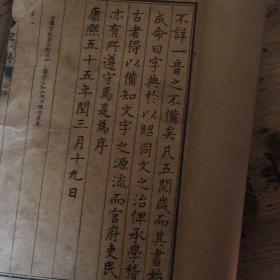 不詳一音之不備矣凡五閱歲而其書始
成命曰字典於以昭同文之治俾承學稽
古者得以備知文字之源流而官府吏民
亦有所遵守焉是為序
康熙五十五年閏三月十九日